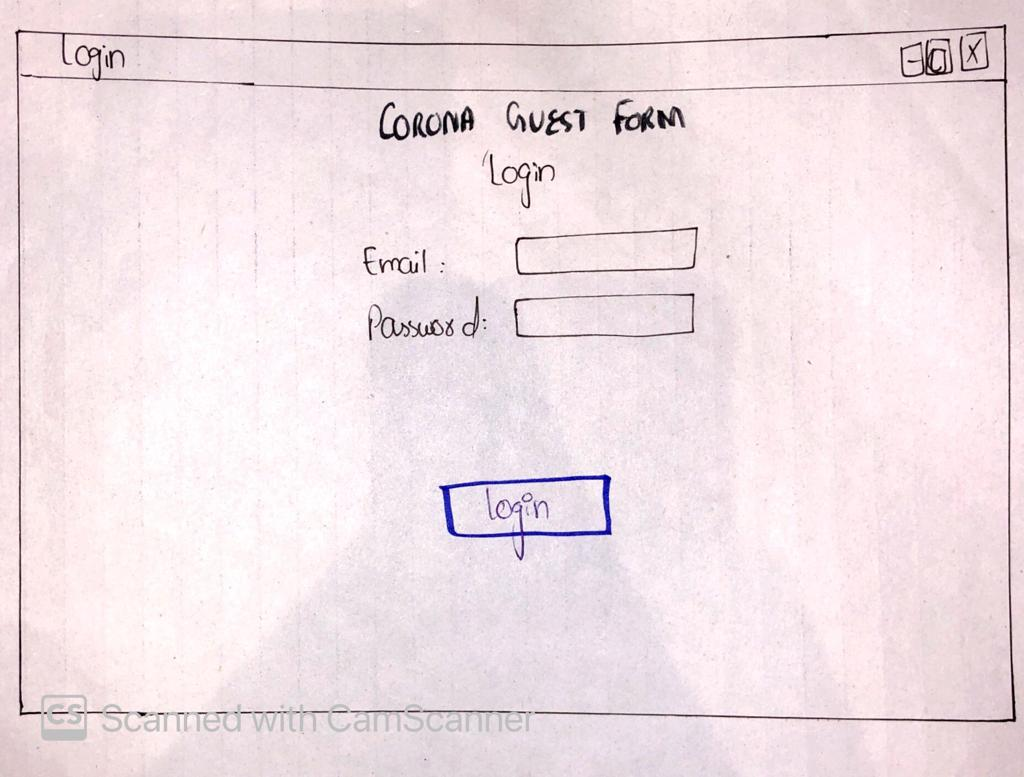 Login
- X
CORONA GUEST FORM
Login
Email :
Password:
login
CS Scanned with CamScanner